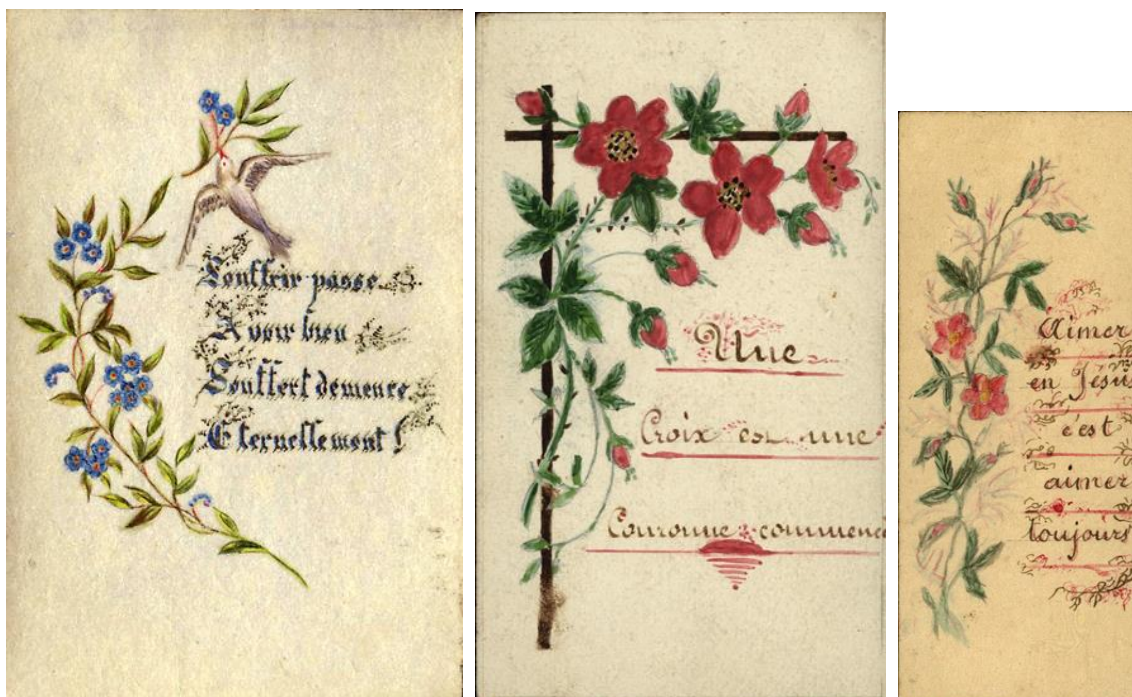 Souffrir passe
A voir bien
Souffert demeure
Eternellement !
Une
Croix est une
Couronne commencé
Aimer
en Jésus
c'est
aimer
toujours